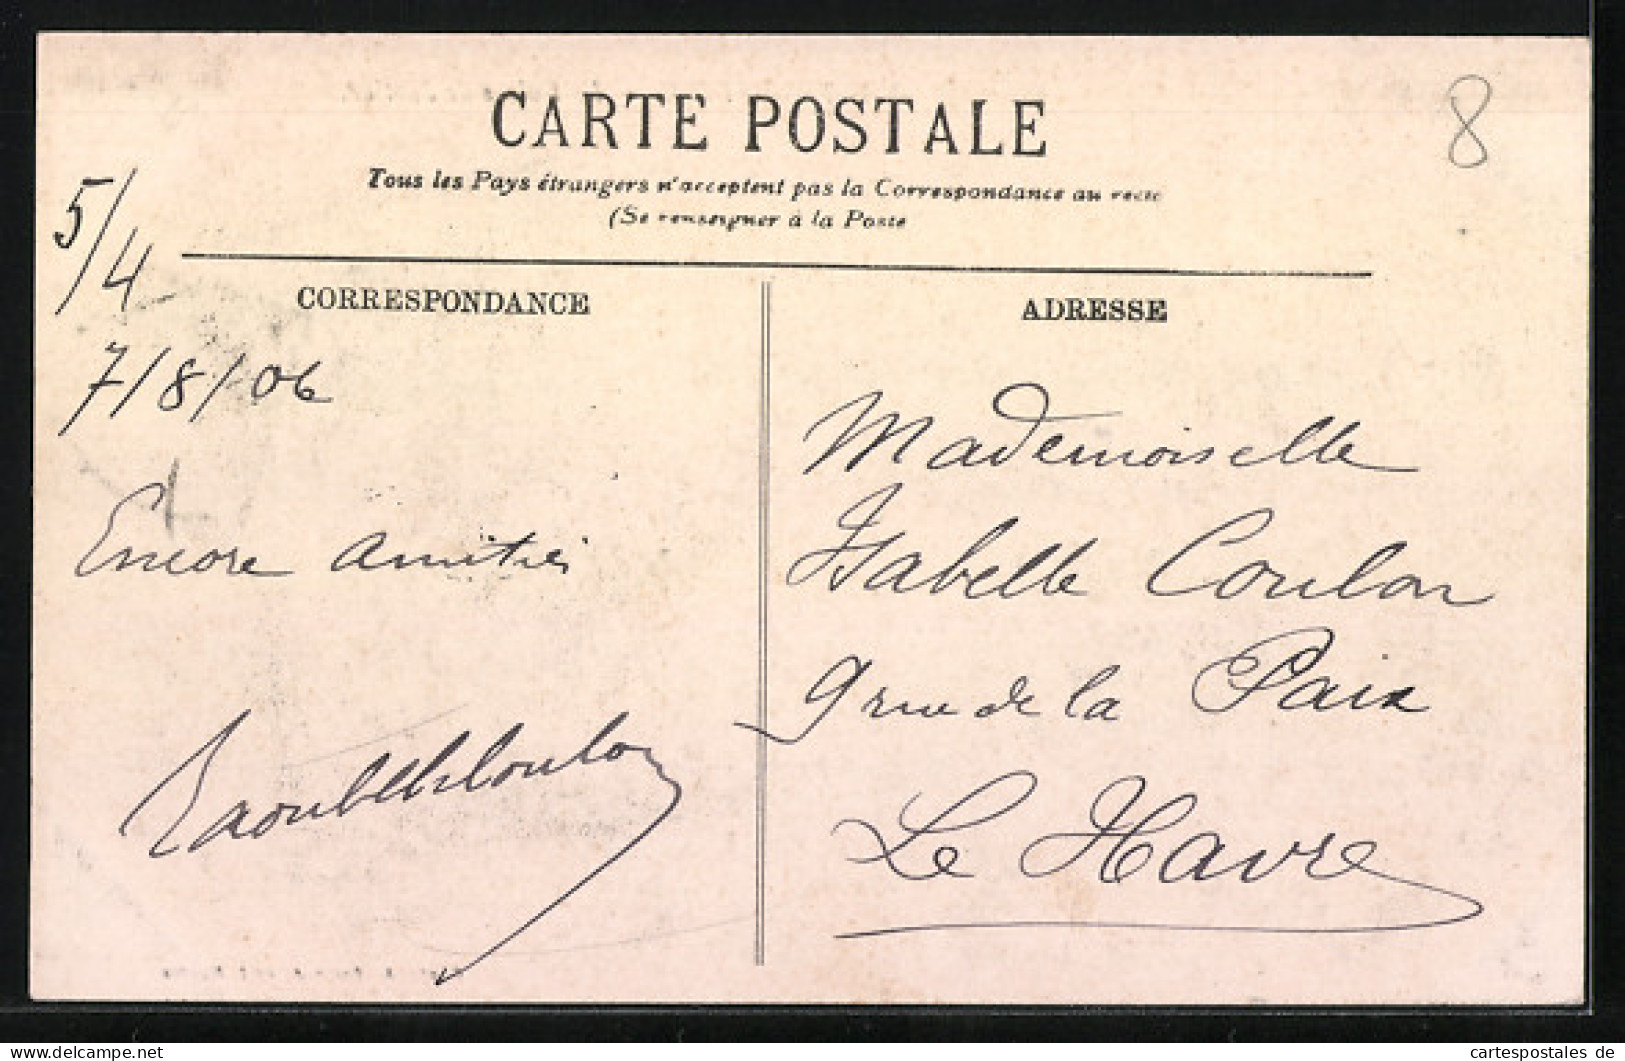 CARTE POSTALE
Tous les Pays étrangers n'acceptent pas la Correspondance au recto
(Se renseigner à la Poste
8
5/4
CORRESPONDANCE
7/8/06
Encore amitiés
ADRESSE
Mademoiselle
Isabelle Coulon
9 rue de la Paix
Le Havre
cartespostales de
delcampe.net